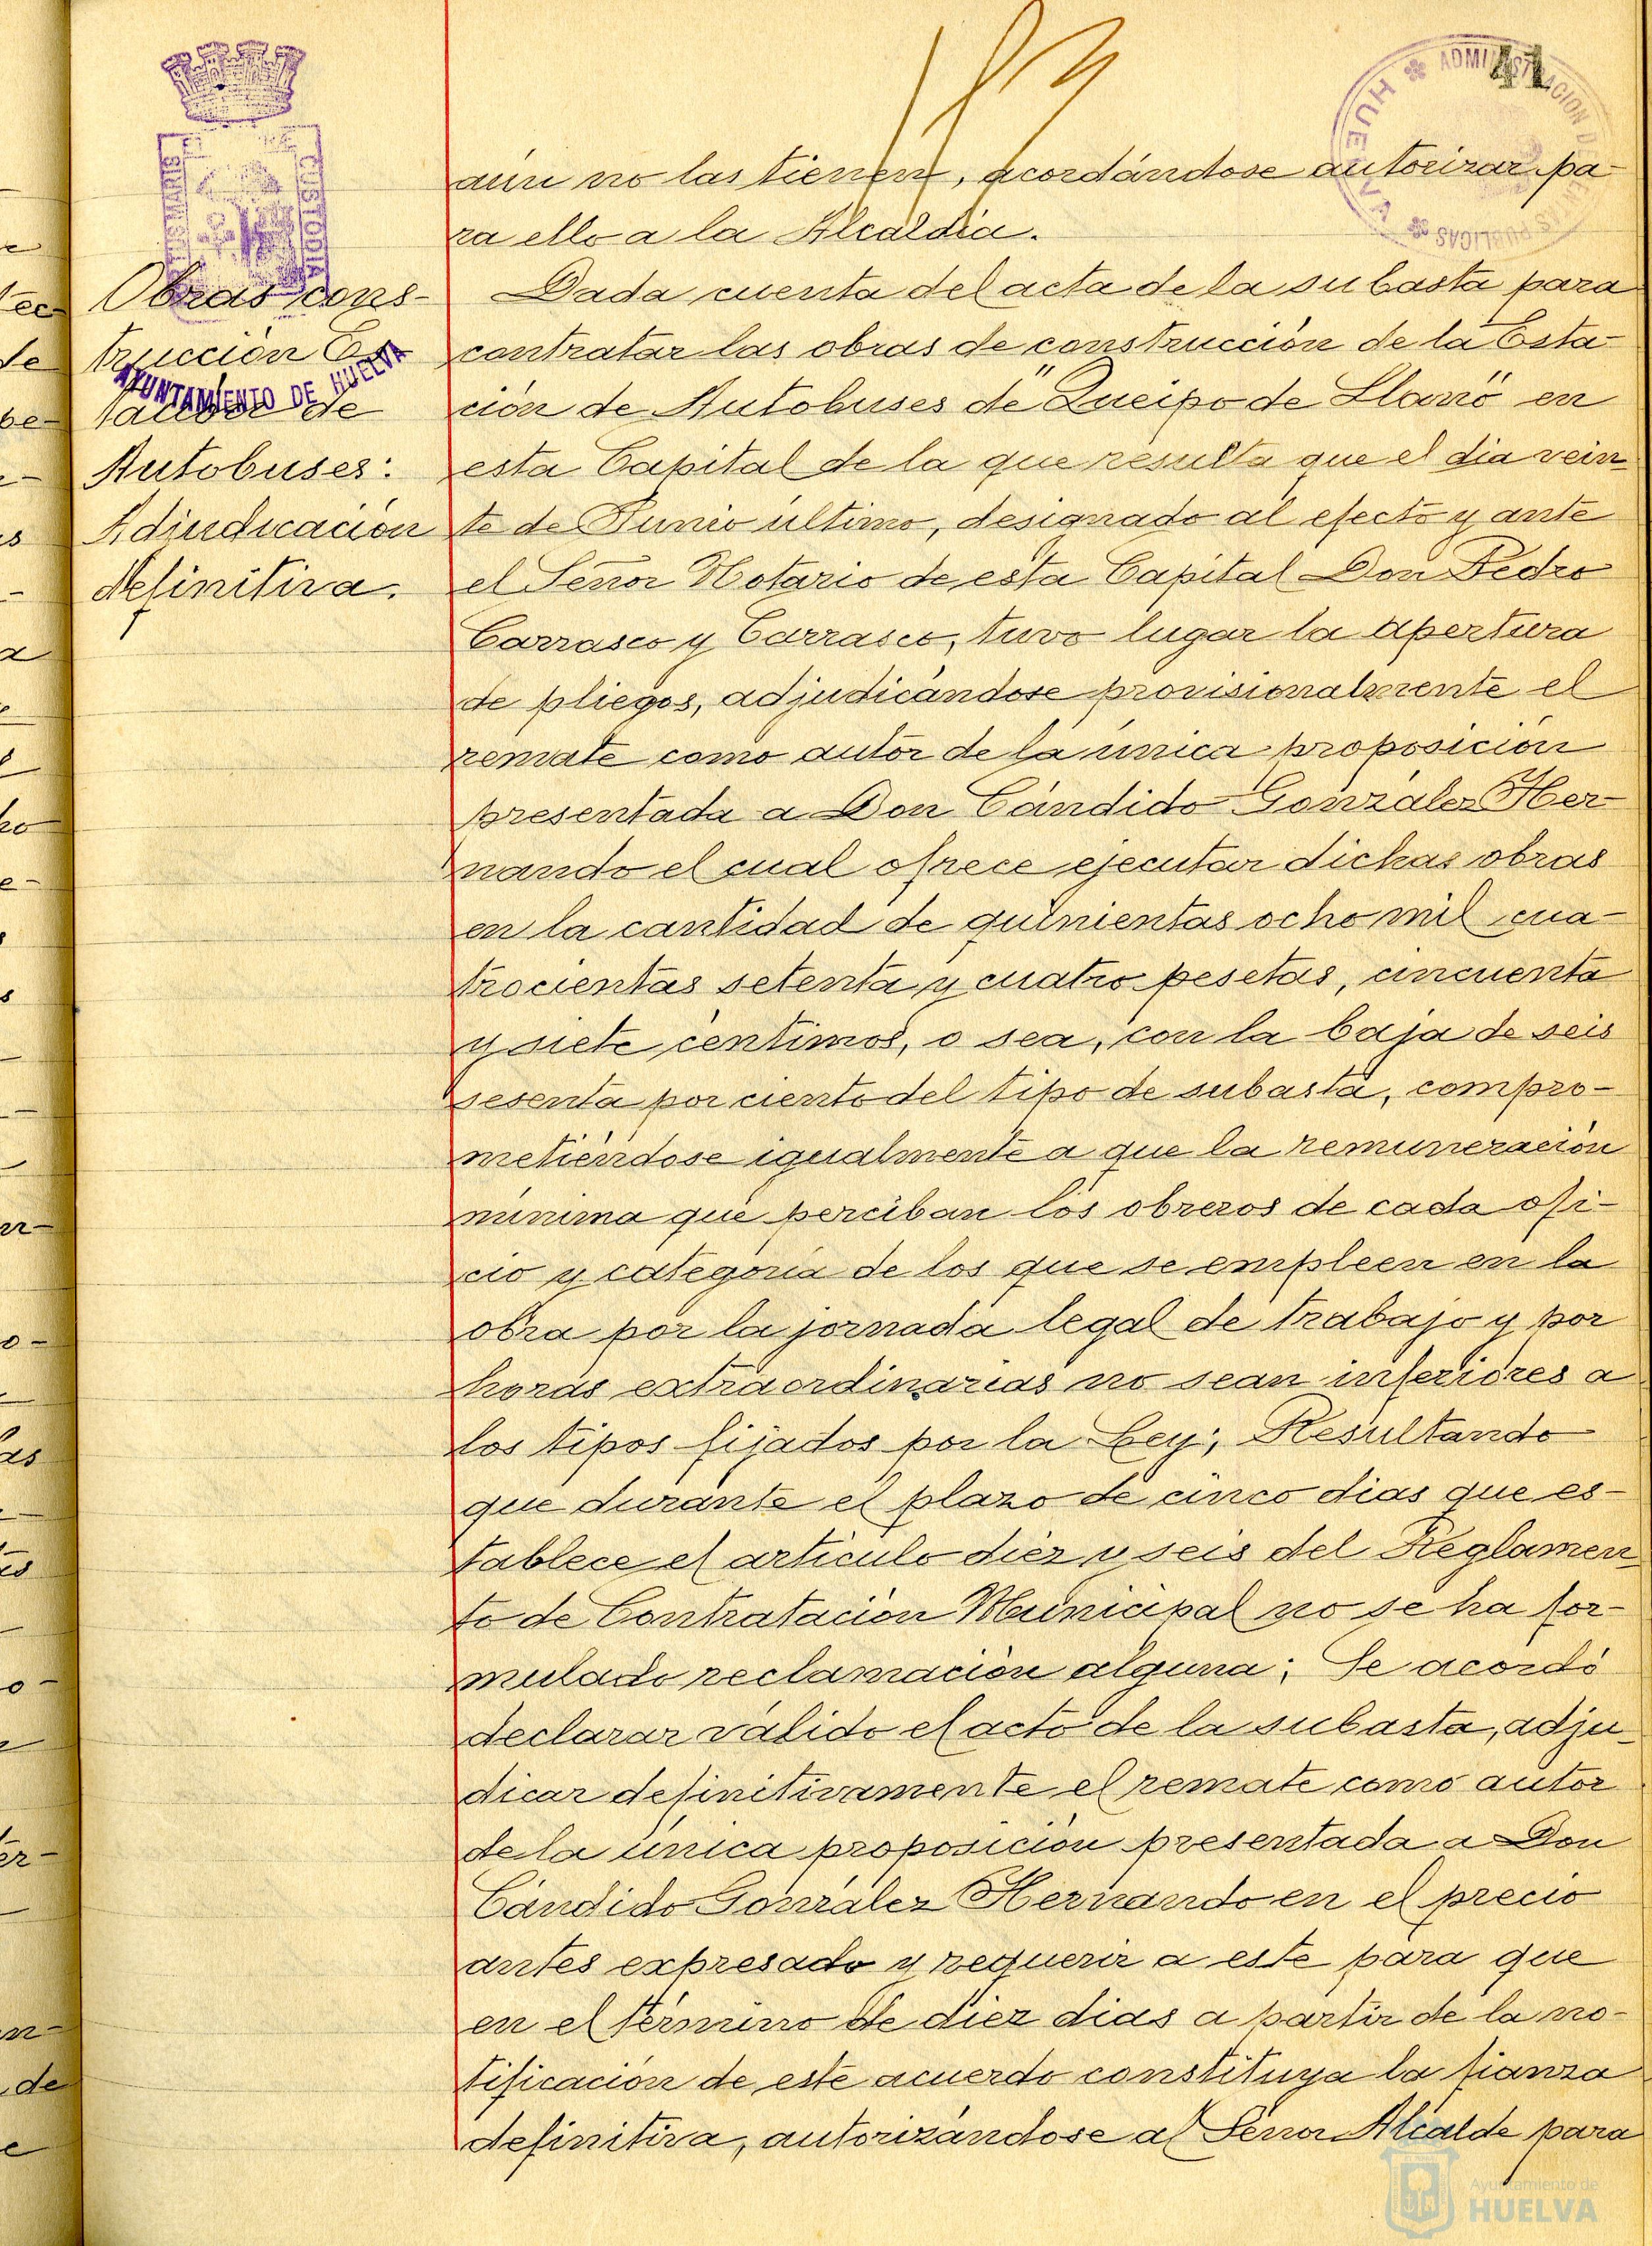 41
ADMINISTRACION DE RENTAS PUBLICAS
HUELVA
CUSTODIA
AYUNTAMIENTO DE HUELVA
Obras cons-
trucción Es
de
Autobuses:
Adjudicación
definitiva.
aún no las tienen, acordándose autorizar pa-
ra ello a la Alcaldía.
Dada cuenta del acta de la subasta para
contratar las obras de construcción de la Esta-
ción de Autobuses de "Queipo de Llano" en
esta Capital de la que resulta que el dia vein-
te de Junio último, designado al efecto y ante
el Señor Notario de esta Capital Don Pedro
Carrasco y Carrasco, tuvo lugar la apertura
de pliegos, adjudicándose provisionalmente el
remate como autor de la única proposición
presentada a Don Cándido González Her-
nando el cual ofrece ejecutar dichas obras
en la cantidad de quinientas ocho mil cua-
trocientas setenta y cuatro pesetas, cincuenta
y siete céntimos, o sea, con la baja de seis
sesenta por ciento del tipo de subasta, compro-
metiéndose igualmente a que la remuneración
mínima que perciban los obreros de cada ofi-
cio y categoría de los que se empleen en la
obra por la jornada legal de trabajo y por
horas extraordinarias no sean inferiores a
los tipos fijados por la Ley; Resultando
que durante el plazo de cinco dias que es-
tablece el artículo diez y seis del Reglamen-
to de Contratación Municipal no se ha for-
mulado reclamación alguna; Se acordó
declarar válido el acto de la subasta, adju-
dicar definitivamente el remate como autor
de la única proposición presentada a Don
Cándido González Hernando en el precio
antes expresado y requerir a este para que
en el término de diez dias a partir de la no-
tificación de este acuerdo constituya la fianza
definitiva, autorizándose al Señor Alcalde para
Ayuntamiento de
HUELVA